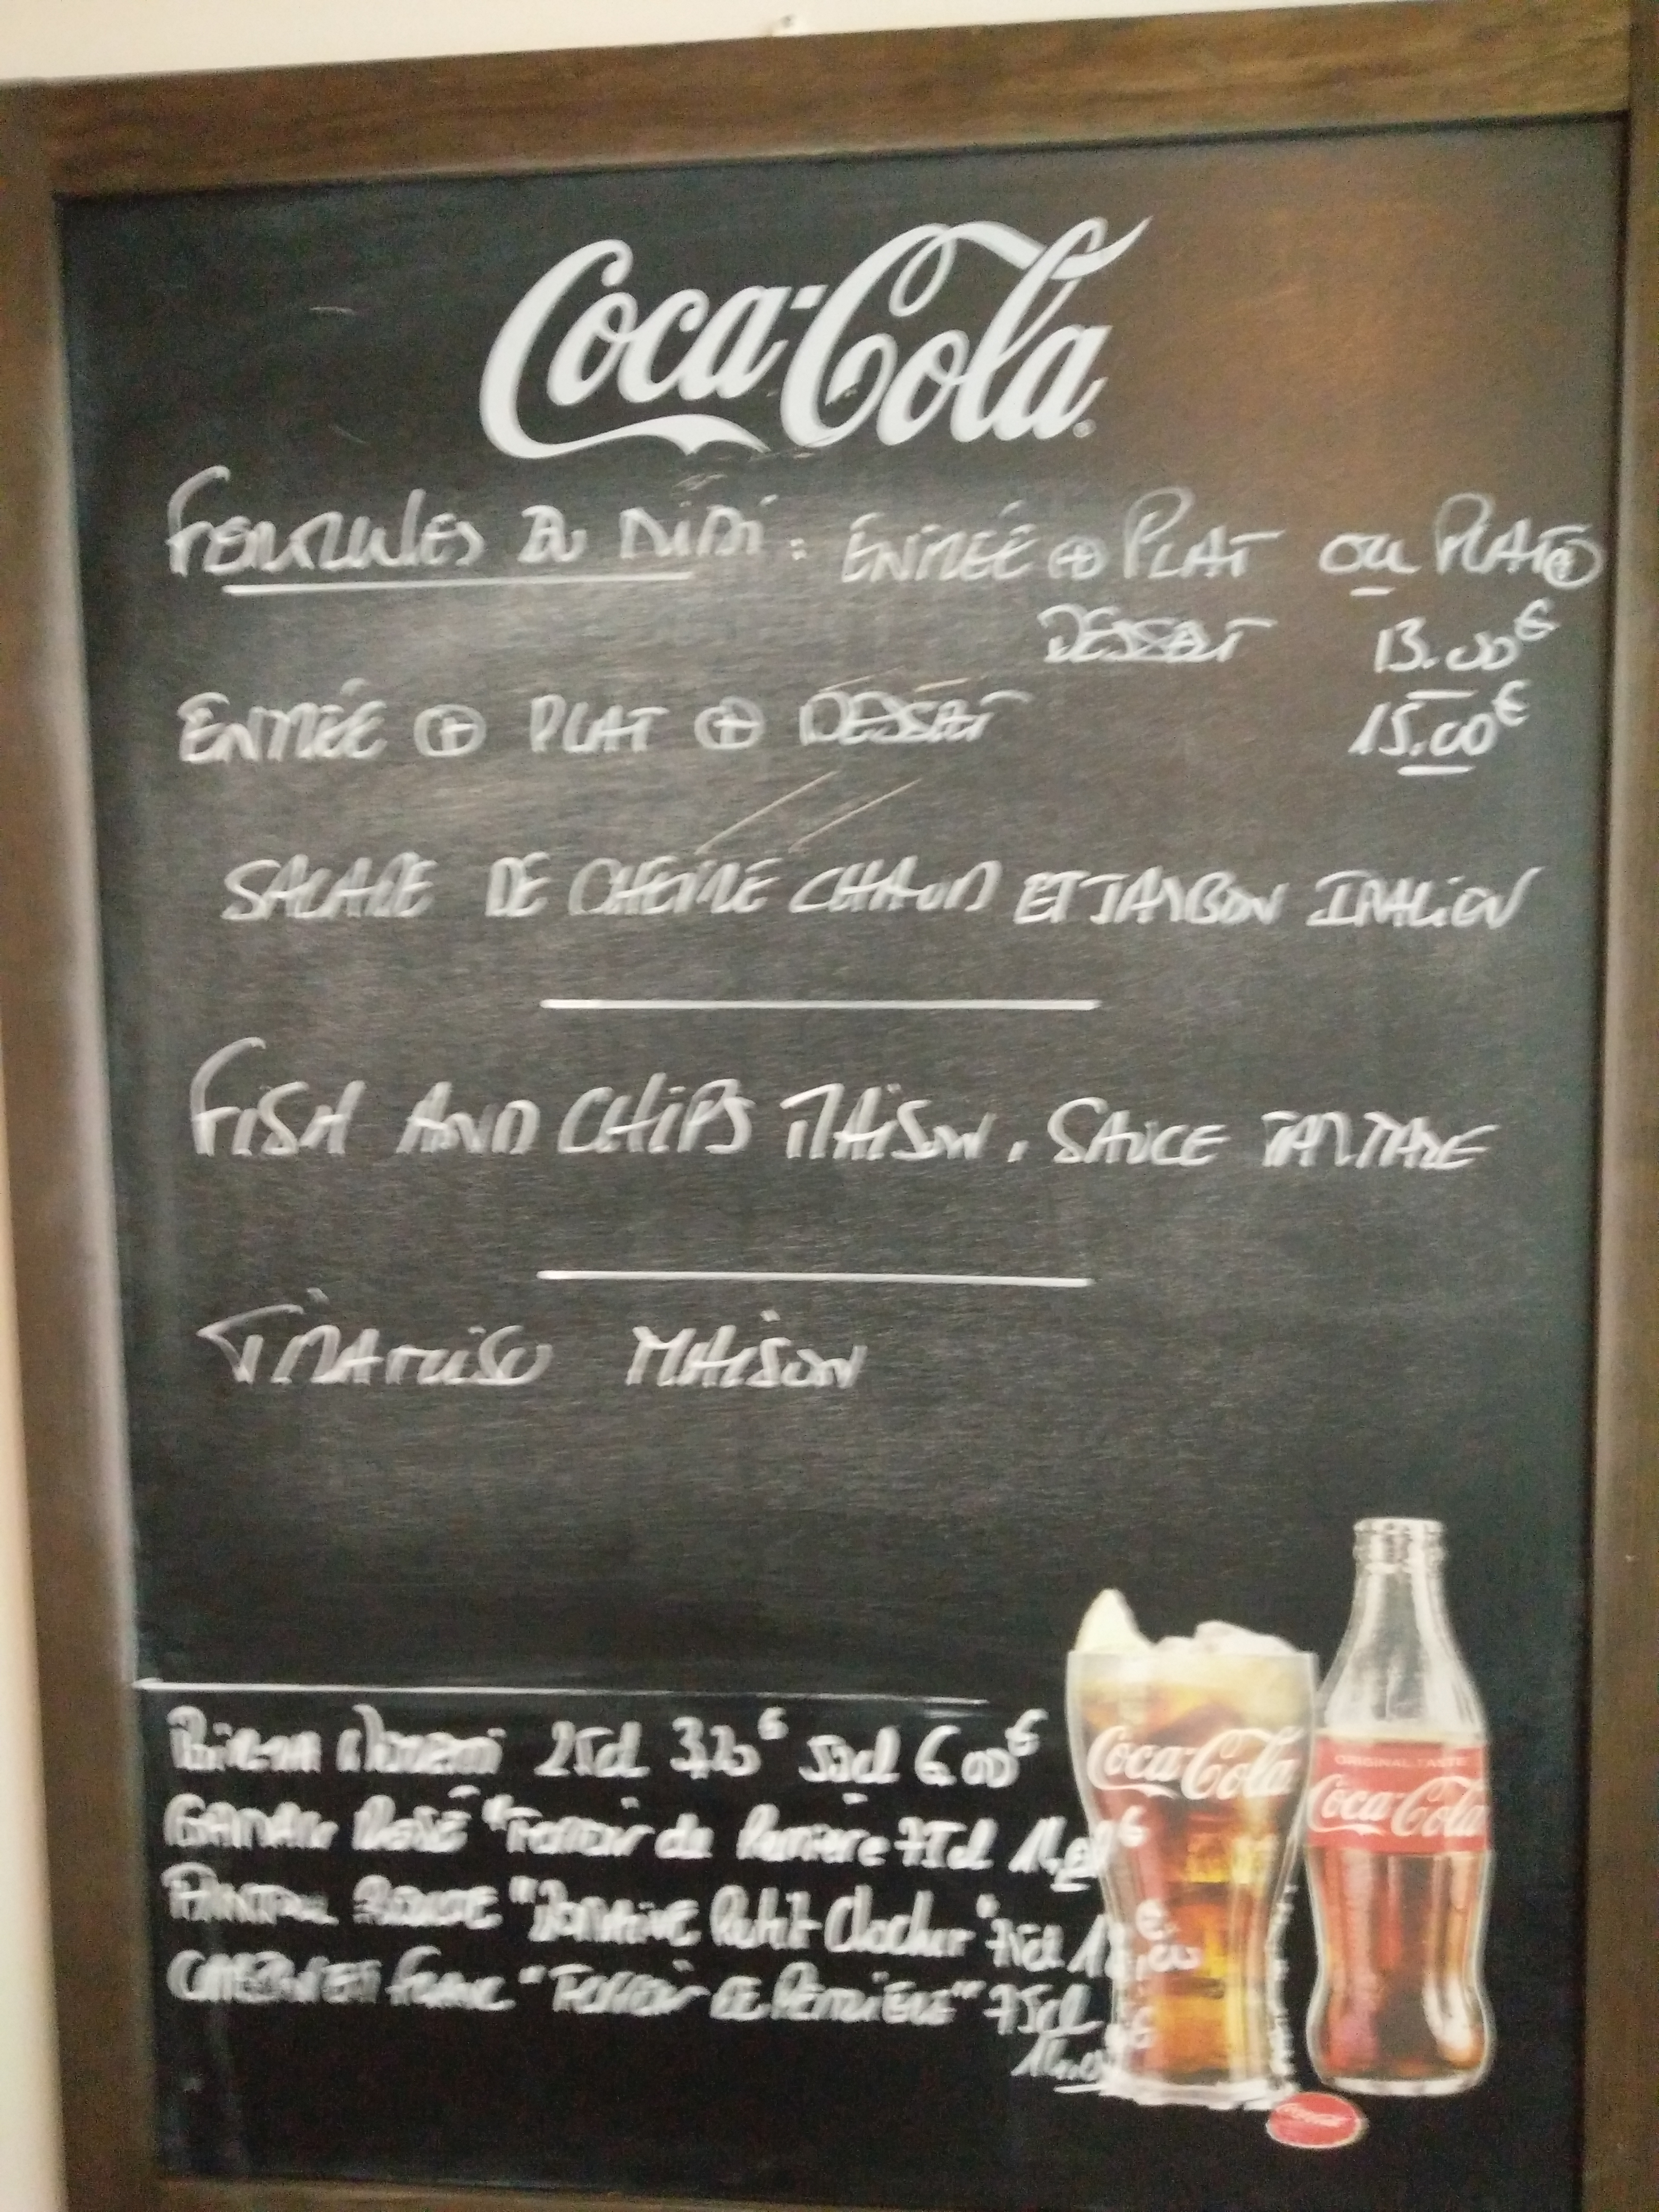 Coca-Cola
FORMULES DU MIDI : ENTRÉE ⊕ PLAT OU PLAT ⊕
DESSERT 13.00€
ENTRÉE ⊕ PLAT ⊕ DESSERT 15.00€
SALADE DE CHEVRE CHAUD ET JAMBON ITALIEN
FISH AND CHIPS MAISON, SAUCE TARTARE
TIRAMISU MAISON
25cl 50cl 6.00€
ROSÉ "Terroir de 75cl
ROUGE "DOMAINE Petit Clocher" 75cl
CABERNET Franc "Terroir DE 75cl
Coca-Cola
ORIGINAL TASTE
Coca-Cola